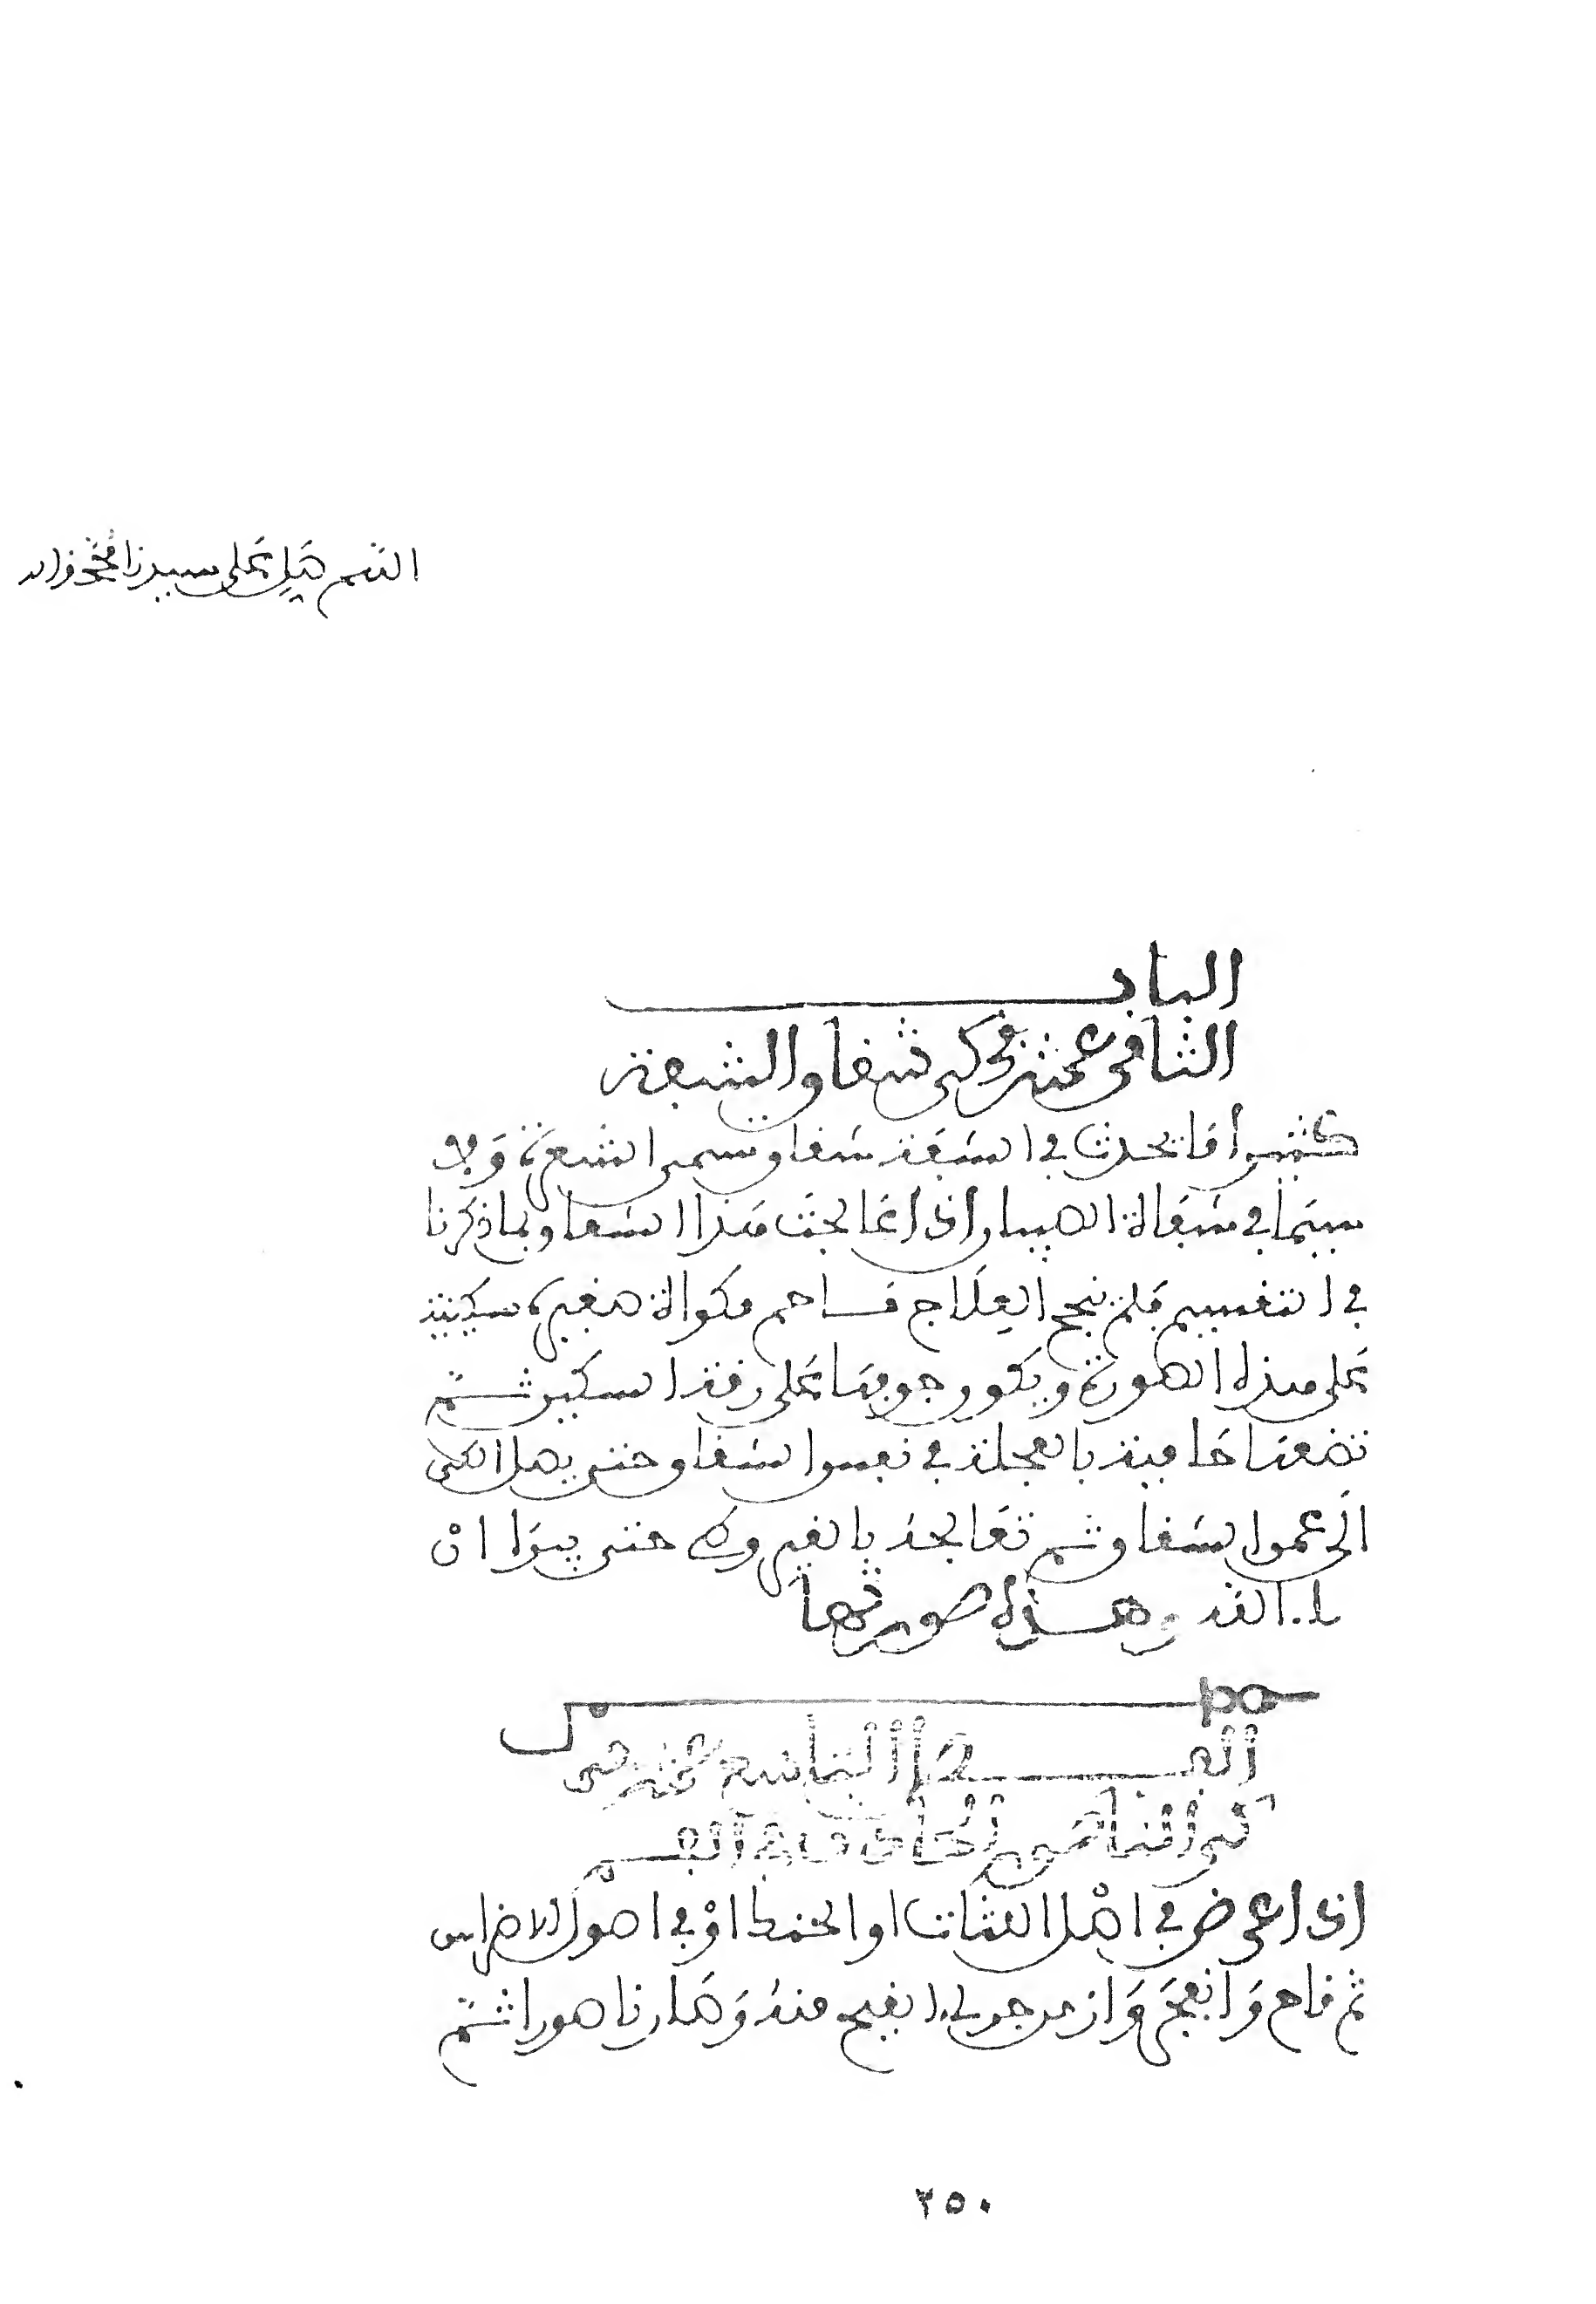 اللهم صل على سيدنا محمد واله
الباب
الثاني عشر في كي شقاق الشفة
كثيرا ما يحدث في الشفة شقاق يسمى الشعرة ولا
سيما في شفاه الصبيان اذا عالجت هذا الشقاق بما ذكرنا
في التقسيم فلم ينجح العلاج فاحم مكواة صغيرة سكينية
على هذه الصورة ويكون جوفها على رقة السكين ثم
تضعها حامية بالعجلة في نفس الشقاق حتى يصل الكي
الى عمق الشقاق ثم تعالجه بالقيروطي حتى يبرا ان
شا الله وهذه صورتها
الفصل التاسع عشر في
كي الناصور الحادث في الفم
اذا عرض في اصل اللثات او الحنك او في اصول الاضراس ورم
ثم قاح وانفجر وازمن جري القيح منه وصار ناصورا ثم
٢٥٠